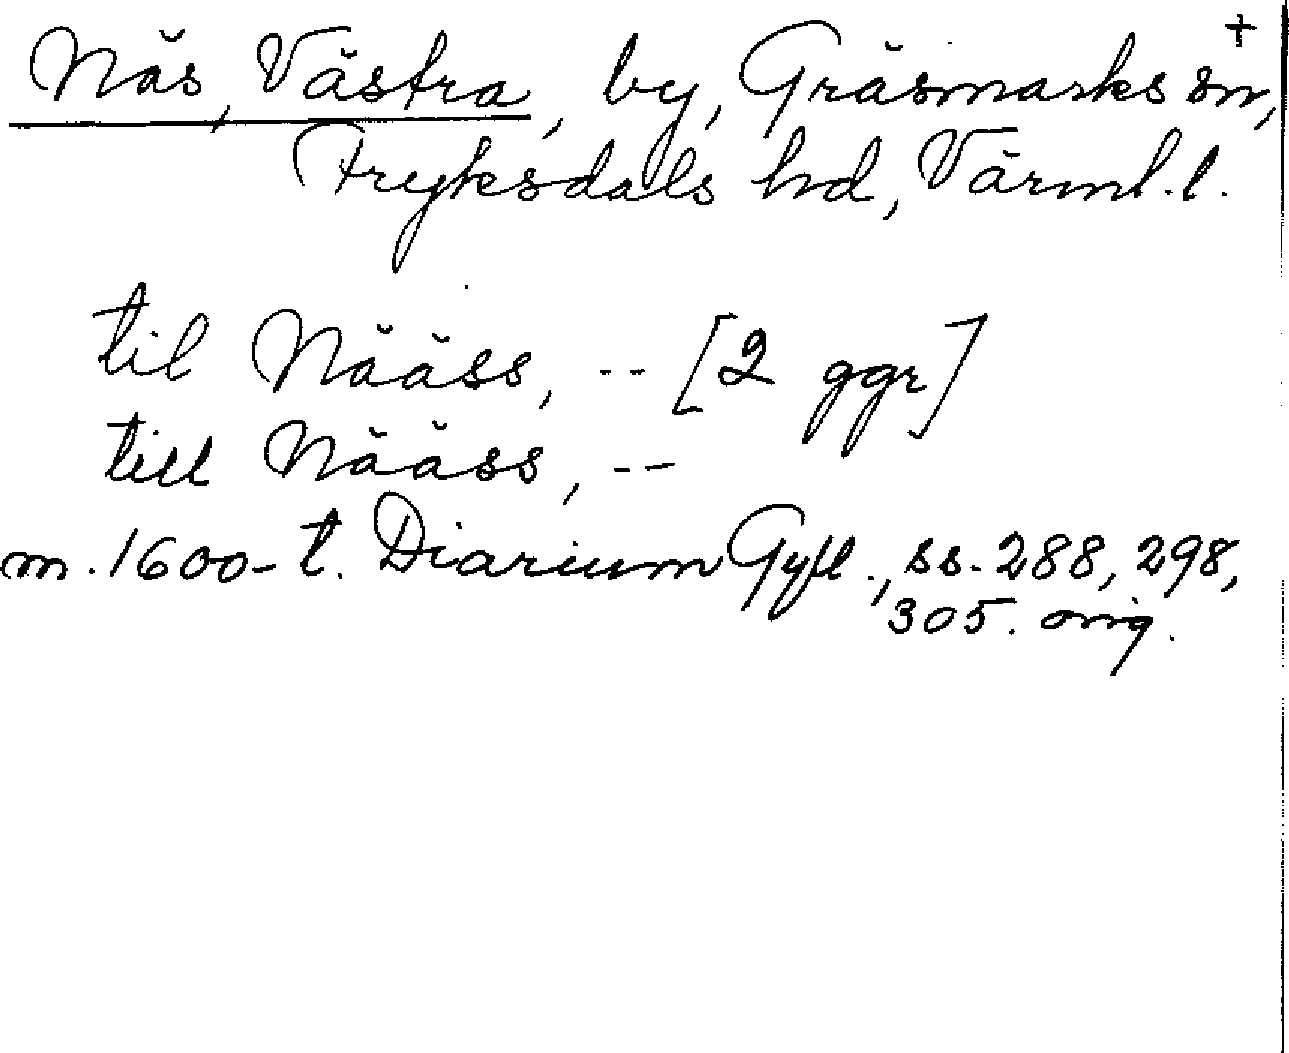 Näs, Västra, by, Gräsmarks sn, +
Fryksdals hd, Värml. l.
til Nääss, -- [2 ggr]
till Nääss, --
m. 1600-t. Diarium Gyll., ss. 288, 298,
305. orig.